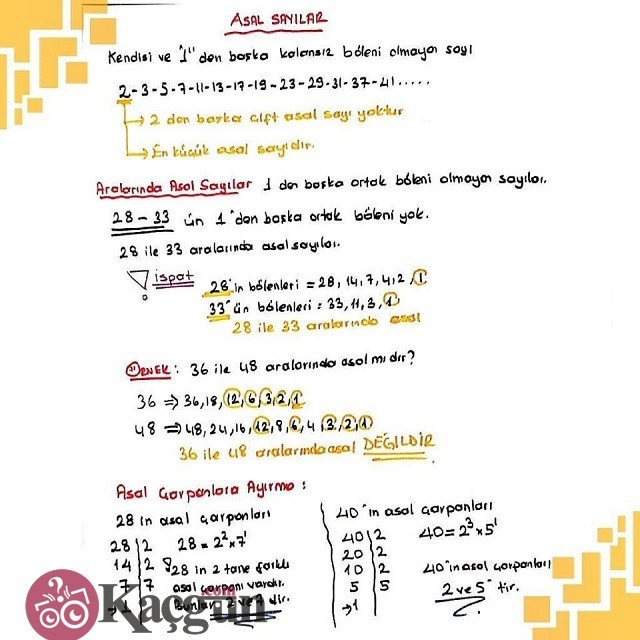 ASAL SAYILAR
Kendisi ve "1" den başka kalansız böleni olmayan sayı
2-3-5-7-11-13-17-19-23-29-31-37-41.....
→ 2 den başka çift asal sayı yoktur
→ En küçük asal sayıdır.
Aralarında Asal Sayılar 1 den başka ortak böleni olmayan sayılar.
28-33 ün 1'den başka ortak böleni yok.
28 ile 33 aralarında asal sayılar.
! ispat
28'in bölenleri = 28, 14, 7, 4, 2, 1
33'ün bölenleri = 33, 11, 3, 1
28 ile 33 aralarında asal
ÖRNEK: 36 ile 48 aralarında asal mıdır?
36 ⇒ 36, 18, 12, 6, 3, 2, 1
48 ⇒ 48, 24, 16, 12, 8, 6, 4, 3, 2, 1
36 ile 48 aralarında asal DEĞİLDİR
Asal Çarpanlara Ayırma:
28 in asal çarpanları
28 | 2 28 = 2² x 7¹
14 | 2 28 in 2 tane farklı
7 | 7 asal çarpanı vardır.
→ 1 Bunlar 2 ve 7 dir.
40'ın asal çarpanları
40 | 2 40 = 2³ x 5¹
20 | 2
10 | 2 40'ın asal çarpanları
5 | 5 2 ve 5 tir.
→ 1
Kaçgün
.com